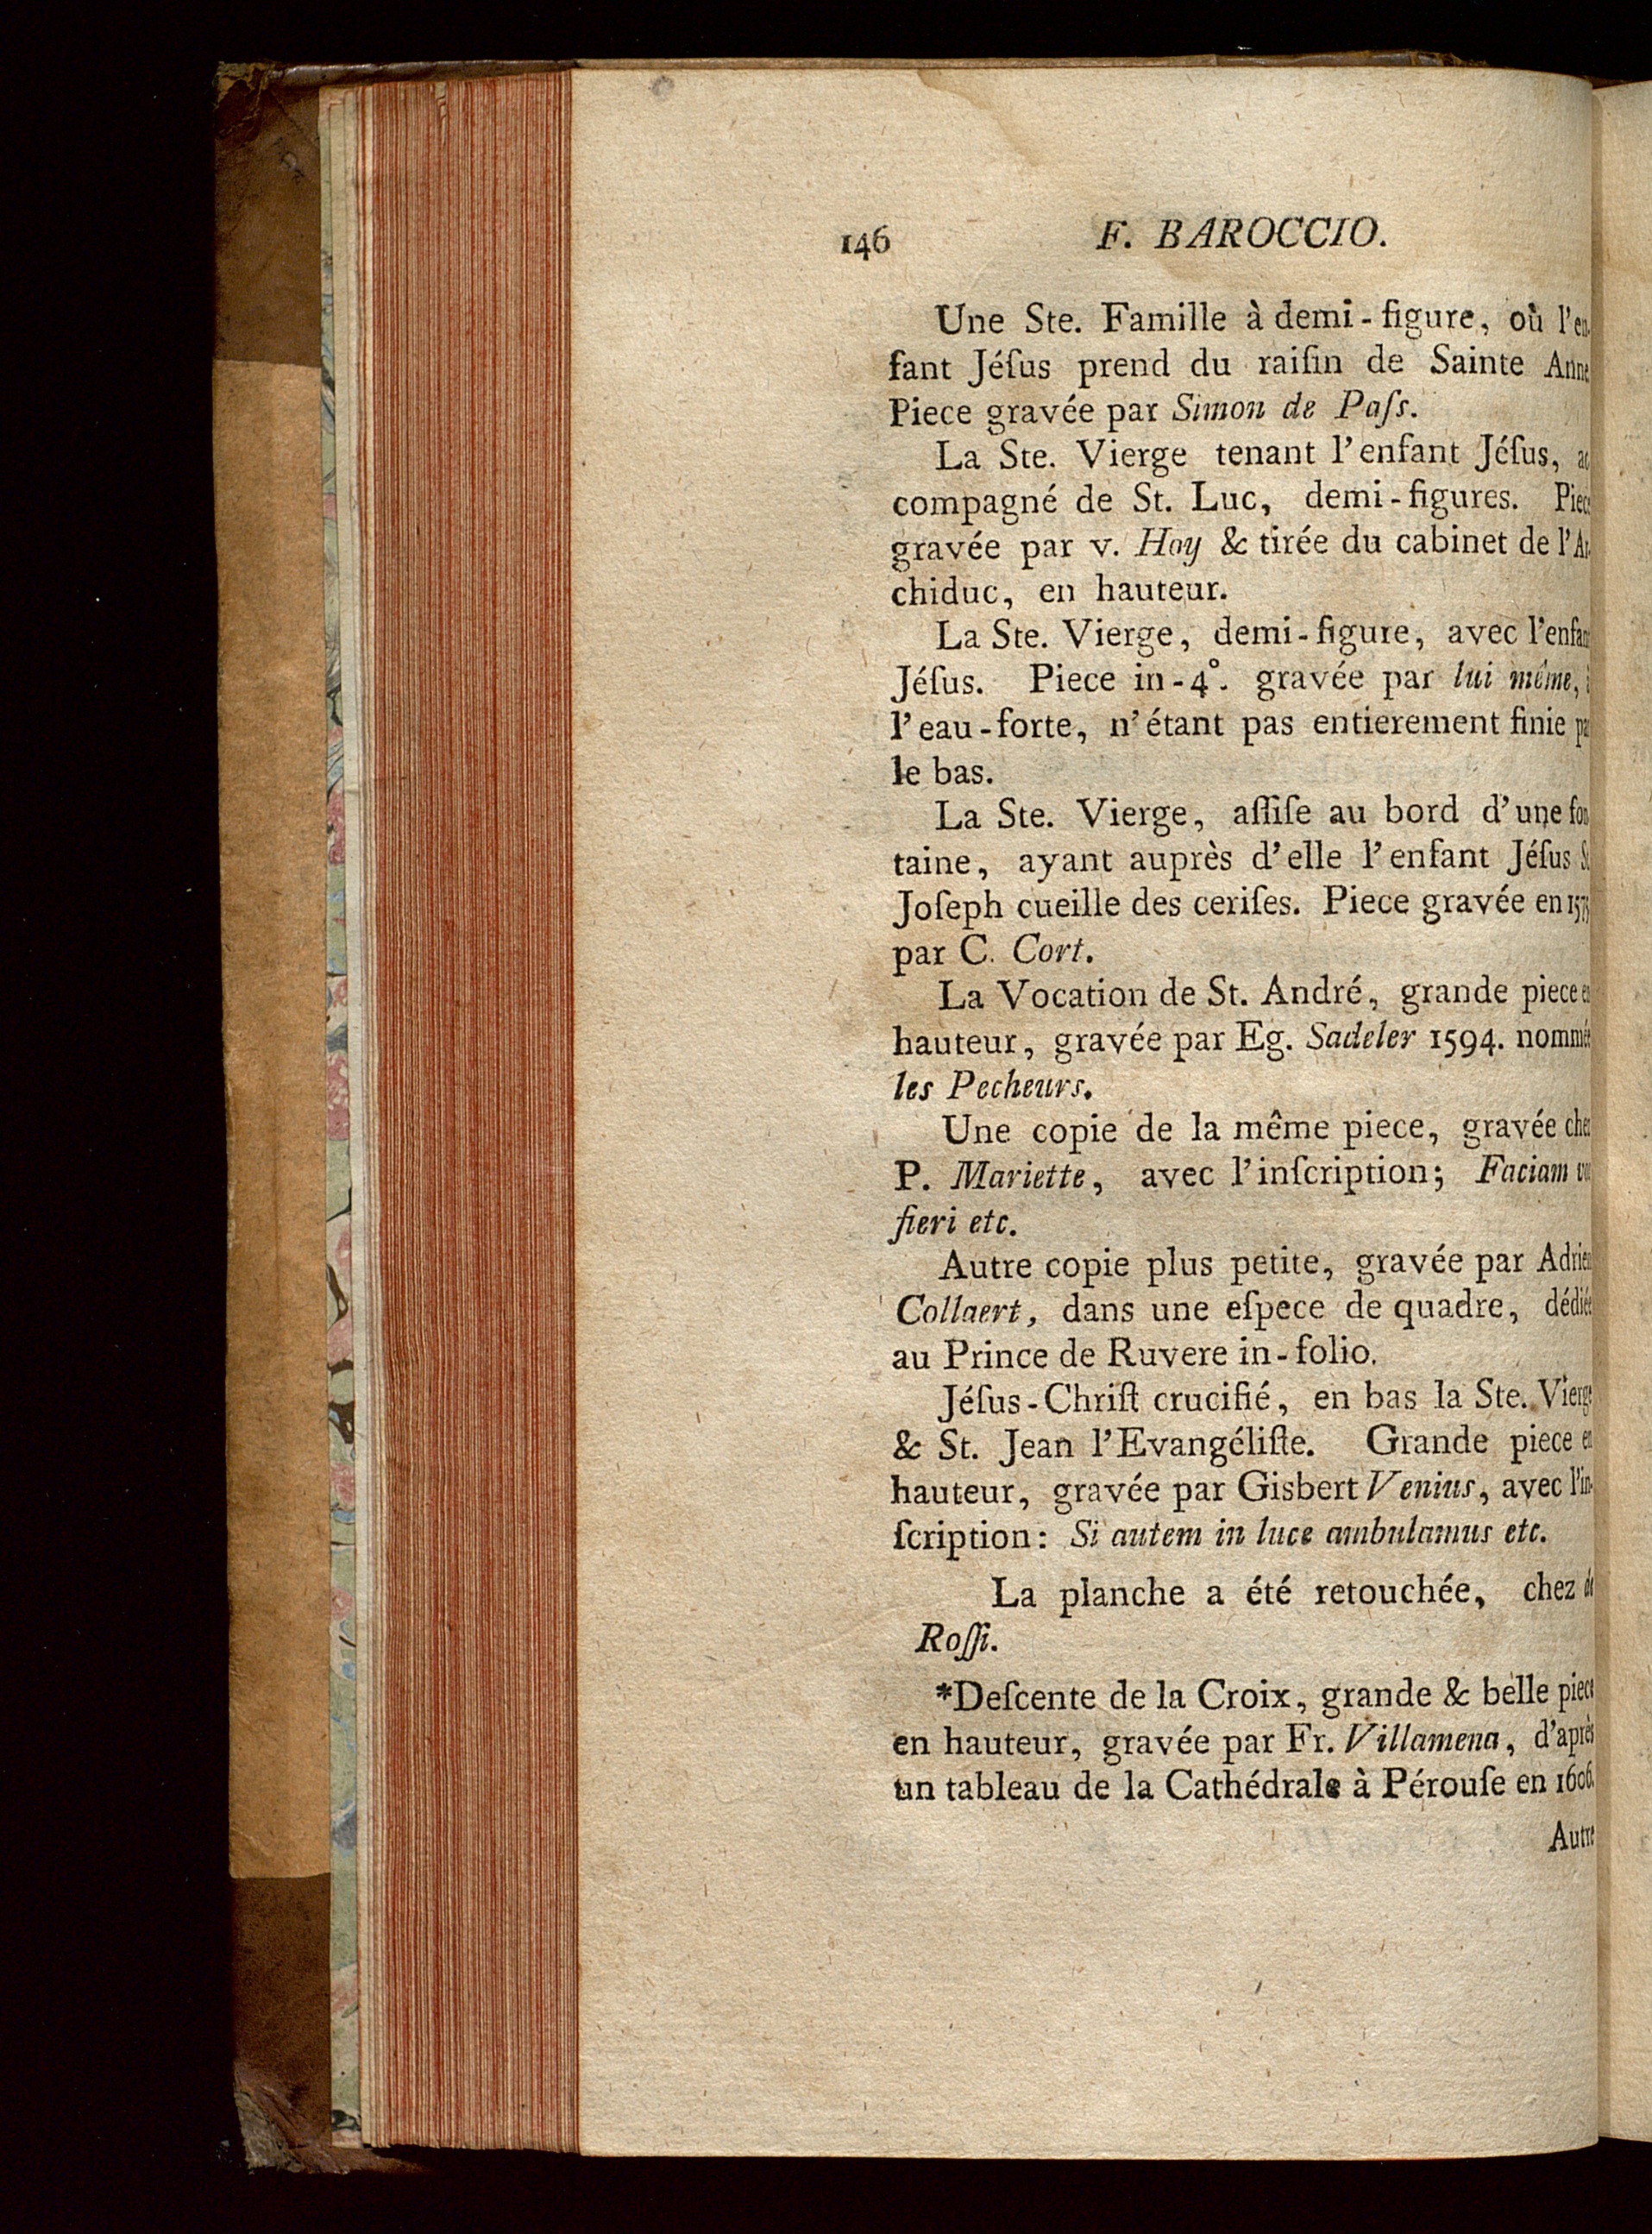 146 F. BAROCCIO.
Une Ste. Famille à demi-figure, où l'en-
fant Jéſus prend du raiſin de Sainte Anne
Piece gravée par Simon de Paſs.
La Ste. Vierge tenant l'enfant Jéſus, ac
compagné de St. Luc, demi-figures. Piece
gravée par v. Hoy & tirée du cabinet de l'Ar-
chiduc, en hauteur.
La Ste. Vierge, demi-figure, avec l'enfant
Jéſus. Piece in-4°. gravée par lui même, à
l'eau-forte, n'étant pas entierement finie par
le bas.
La Ste. Vierge, aſſiſe au bord d'une fon
taine, ayant auprès d'elle l'enfant Jéſus &
Joſeph cueille des ceriſes. Piece gravée en 1575
par C. Cort.
La Vocation de St. André, grande piece en
hauteur, gravée par Eg. Sadeler 1594. nommée
les Pecheurs.
Une copie de la même piece, gravée chez
P. Mariette, avec l'inſcription; Faciam vos
fieri etc.
Autre copie plus petite, gravée par Adrien
Collaert, dans une eſpece de quadre, dédiée
au Prince de Ruvere in-folio.
Jéſus-Chriſt crucifié, en bas la Ste. Vierge
& St. Jean l'Evangéliſte. Grande piece en
hauteur, gravée par Gisbert Venius, avec l'in-
ſcription: Si autem in luce ambulamus etc.
La planche a été retouchée, chez de
Roſſi.
*Deſcente de la Croix, grande & belle piece
en hauteur, gravée par Fr. Villamena, d'après
un tableau de la Cathédrale à Pérouſe en 1606.
Autre